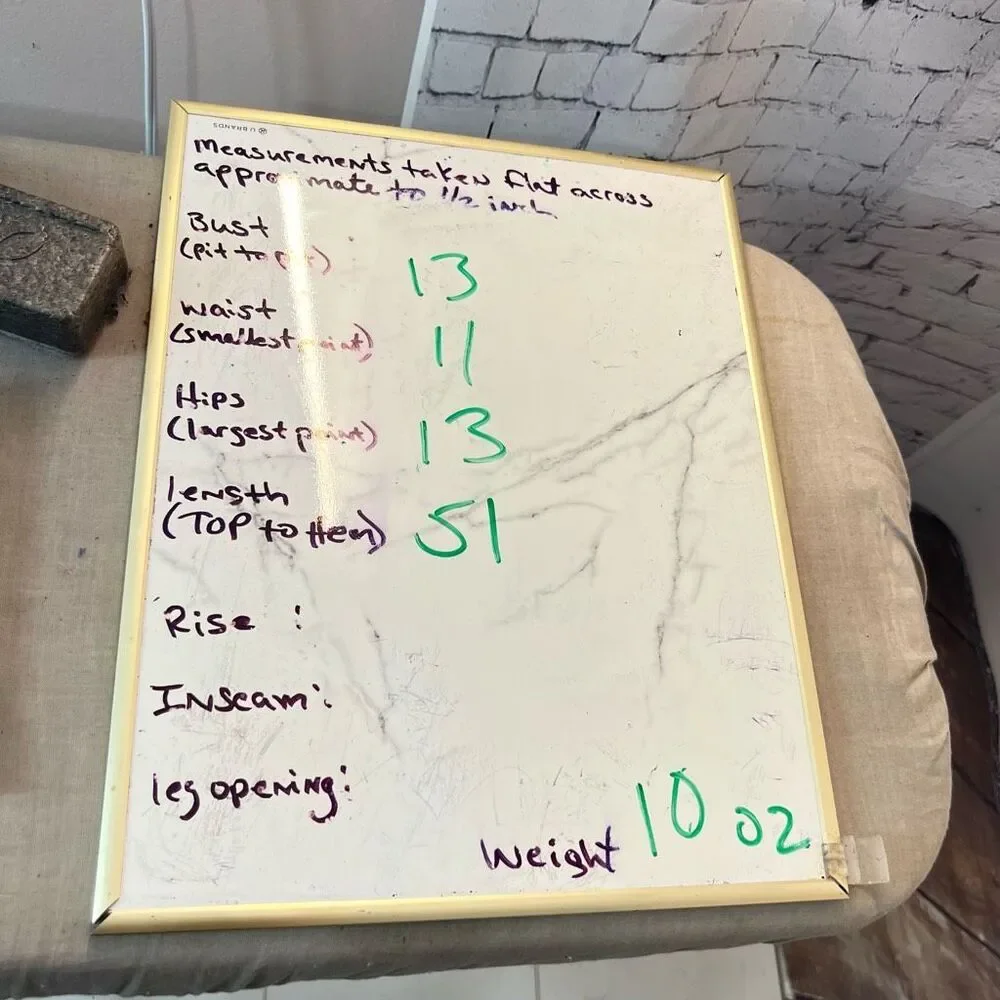 U BRANDS
measurements taken flat across
approximate to 1/2 inch.
Bust
(pit to pit) 13
waist
(smallest point) 11
Hips
(largest point) 13
length
(TOP to Hem) 51
Rise :
INseam:
leg opening:
Weight 10 oz